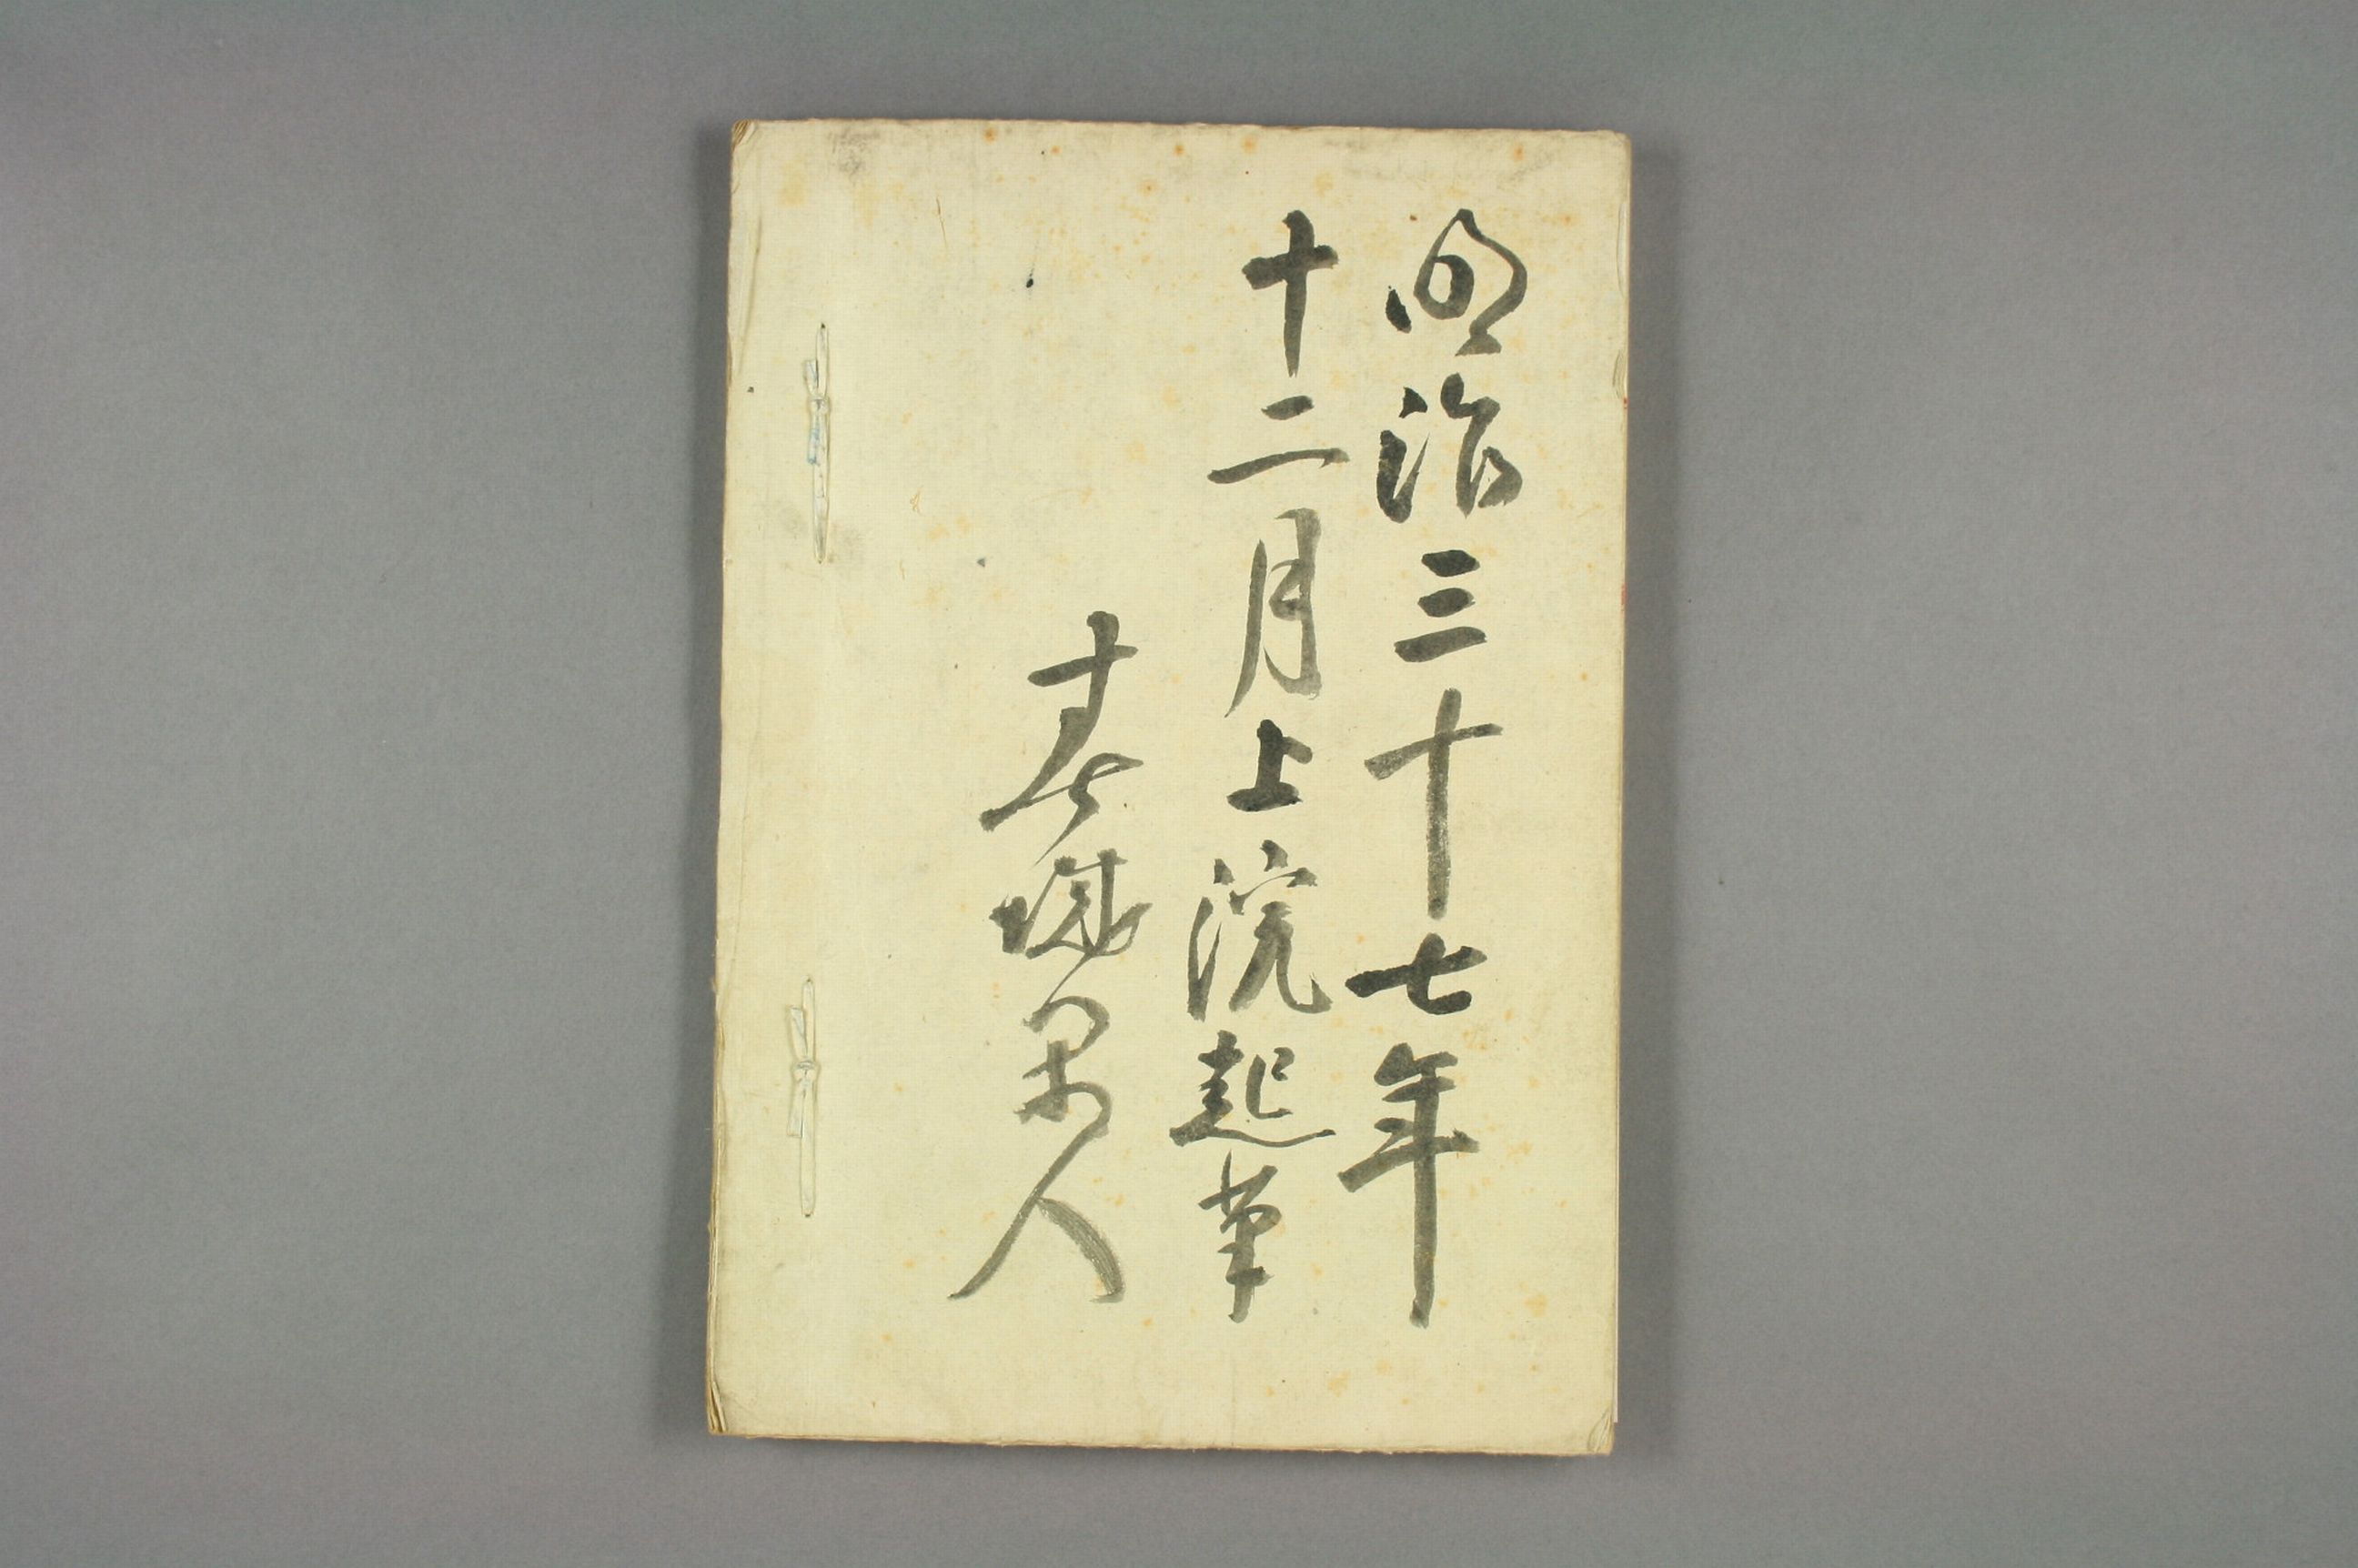 明治三十七年
十二月上浣起筆
春城学人